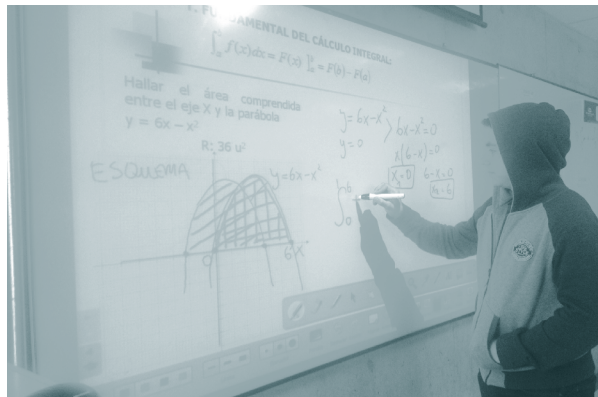 FUNDAMENTAL DEL CÁLCULO INTEGRAL:
∫ₐᵇ f(x)dx = F(x) ]ₐᵇ = F(b) - F(a)
Hallar el área comprendida
entre el eje X y la parábola
y = 6x – x²
R: 36 u²
ESQUEMA
y=6x-x²
0
6
X
y=6x-x²
y=0
6x-x²=0
x(6-x)=0
x=0
6-x=0
∫